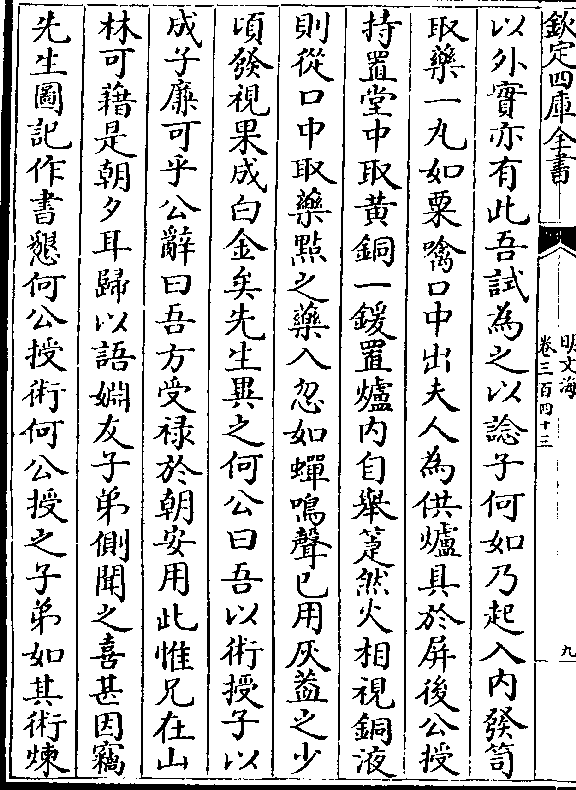 欽定四庫全書
明文海
卷三百四十三
九
以外實亦有此吾試為之以諗子何如乃起入內發笥
取藥一丸如粟噙口中出夫人為供爐具於屏後公授
持置堂中取黃銅一鍰置爐內自舉箑然火相視銅液
則從口中取藥㸃之藥入忽如蟬鳴聲已用灰蓋之少
頃發視果成白金矣先生異之何公曰吾以術授子以
成子廉可乎公辭曰吾方受禄於朝安用此惟兄在山
林可藉是朝夕耳歸以語婣友子弟側聞之喜甚因竊
先生圖記作書懇何公授術何公授之子弟如其術煉